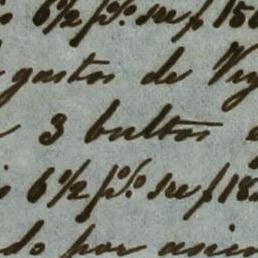 6 1/2 p% sre f 15
gastos de Vig
3 bultos
6 1/2 p% sre f 18
do por asien